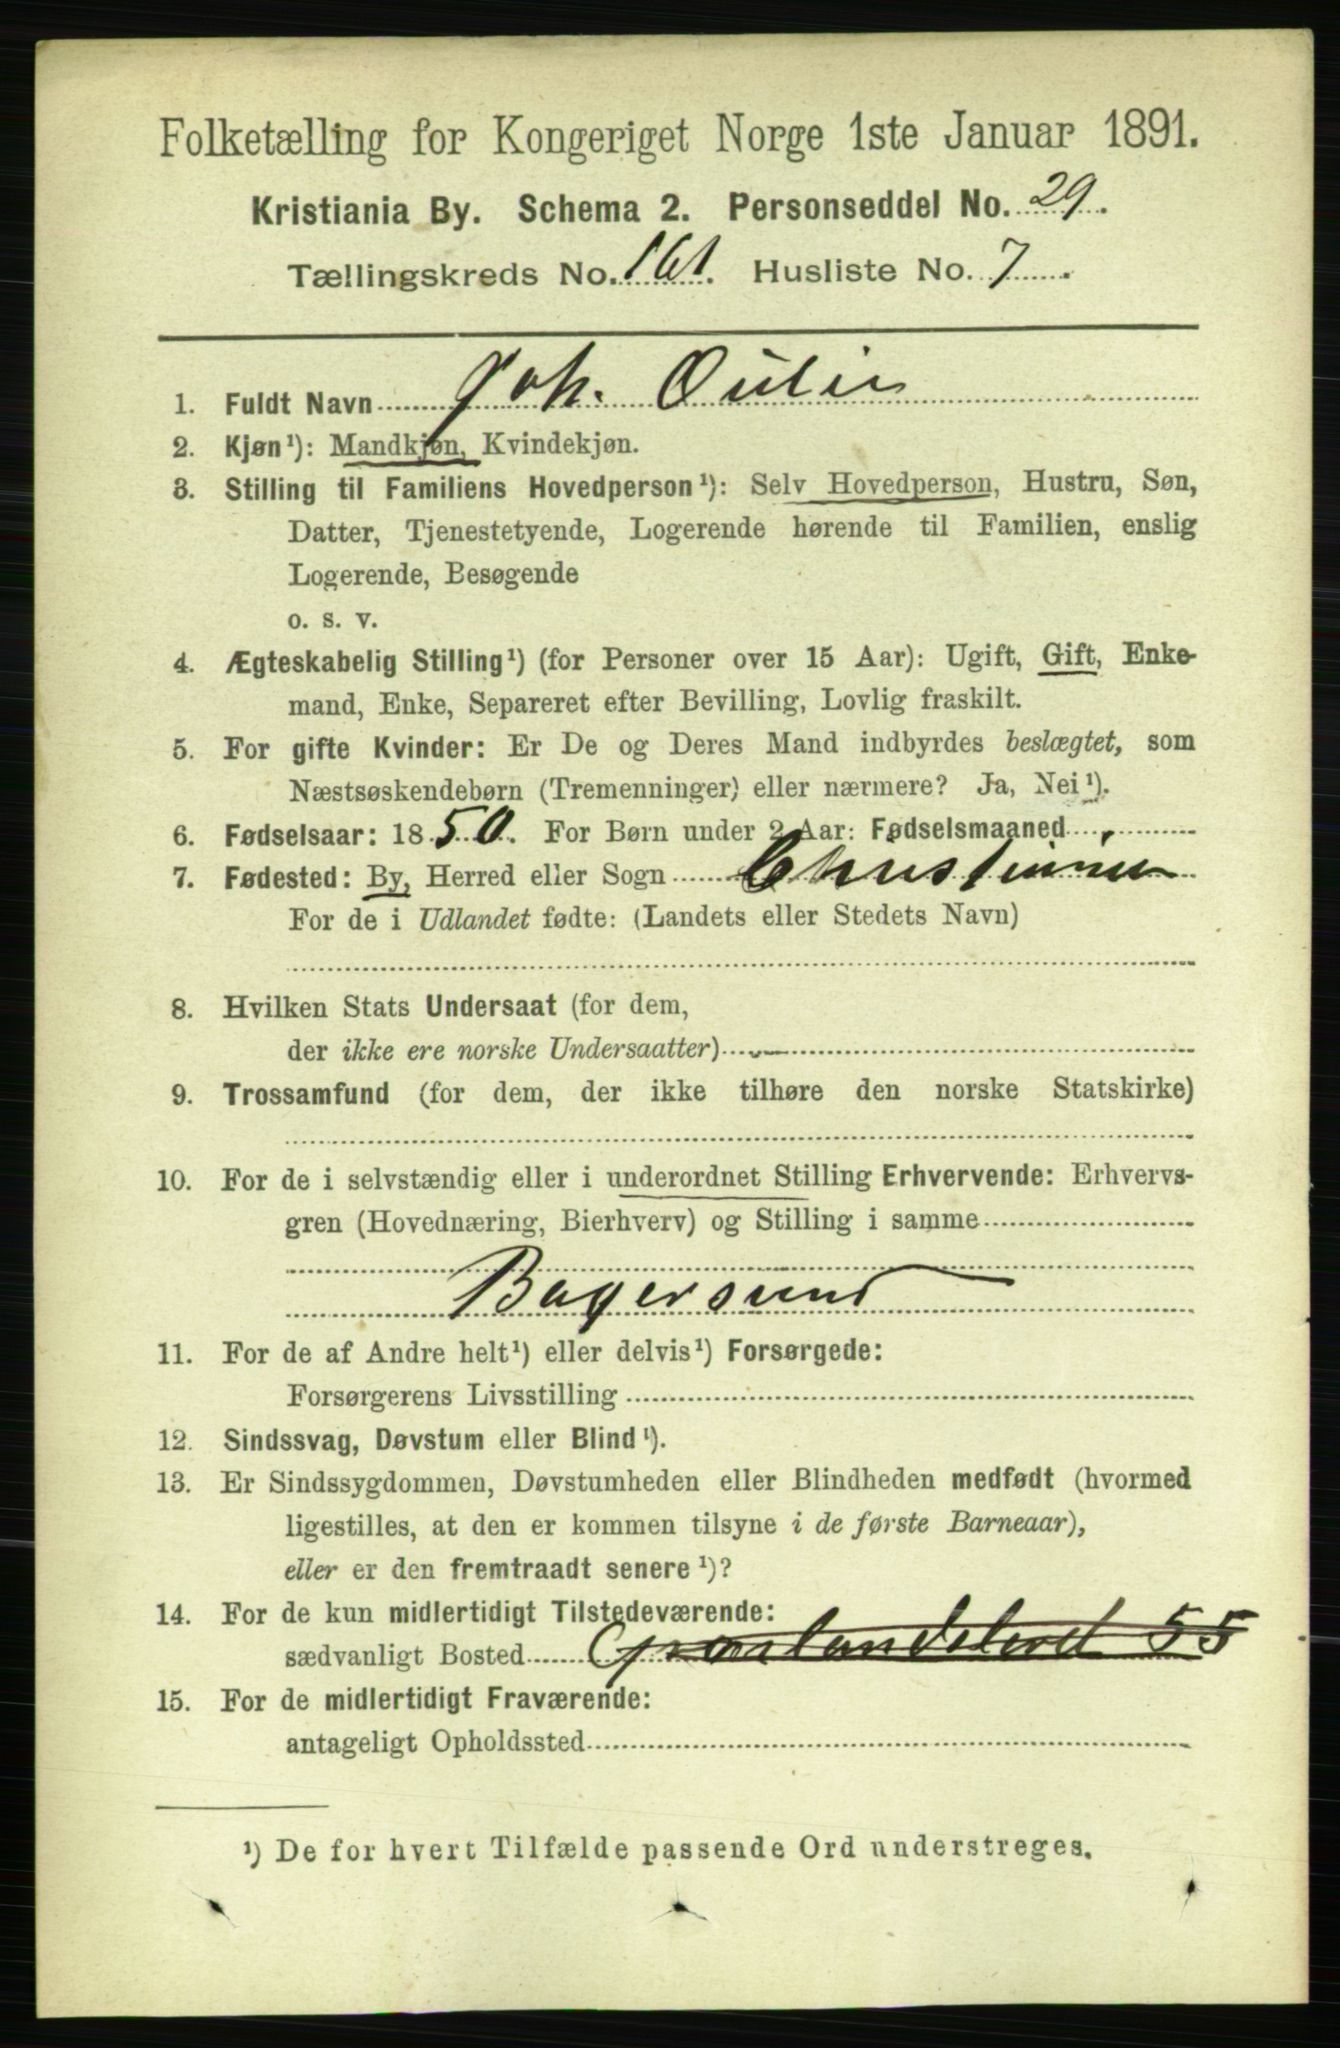 Folketælling for Kongeriget Norge 1ste Januar 1891.
Kristiania By. Schema 2. Personseddel No. 29.
Tællingskreds No. 161. Husliste No. 7.
1. Fuldt Navn Joh. Oulie
2. Kjøn¹): Mandkjøn, Kvindekjøn.
3. Stilling til Familiens Hovedperson¹): Selv Hovedperson, Hustru, Søn,
Datter, Tjenestetyende, Logerende hørende til Familien, enslig
Logerende, Besøgende
o. s. v.
4. Ægteskabelig Stilling¹) (for Personer over 15 Aar): Ugift, Gift, Enke-
mand, Enke, Separeret efter Bevilling, Lovlig fraskilt.
5. For gifte Kvinder: Er De og Deres Mand indbyrdes beslægtet, som
Næstsøskendebørn (Tremenninger) eller nærmere? Ja, Nei¹).
6. Fødselsaar: 1850. For Børn under 2 Aar: Fødselsmaaned
7. Fødested: By, Herred eller Sogn Christiania
For de i Udlandet fødte: (Landets eller Stedets Navn)
8. Hvilken Stats Undersaat (for dem,
der ikke ere norske Undersaatter)
9. Trossamfund (for dem, der ikke tilhøre den norske Statskirke)
10. For de i selvstændig eller i underordnet Stilling Erhvervende: Erhvervs-
gren (Hovednæring, Bierhverv) og Stilling i samme
Bagersvend
11. For de af Andre helt¹) eller delvis¹) Forsørgede:
Forsørgerens Livsstilling
12. Sindssvag, Døvstum eller Blind¹).
13. Er Sindssygdommen, Døvstumheden eller Blindheden medfødt (hvormed
ligestilles, at den er kommen tilsyne i de første Barneaar),
eller er den fremtraadt senere¹)?
14. For de kun midlertidigt Tilstedeværende:
sædvanligt Bosted 55
15. For de midlertidigt Fraværende:
antageligt Opholdssted
¹) De for hvert Tilfælde passende Ord understreges.